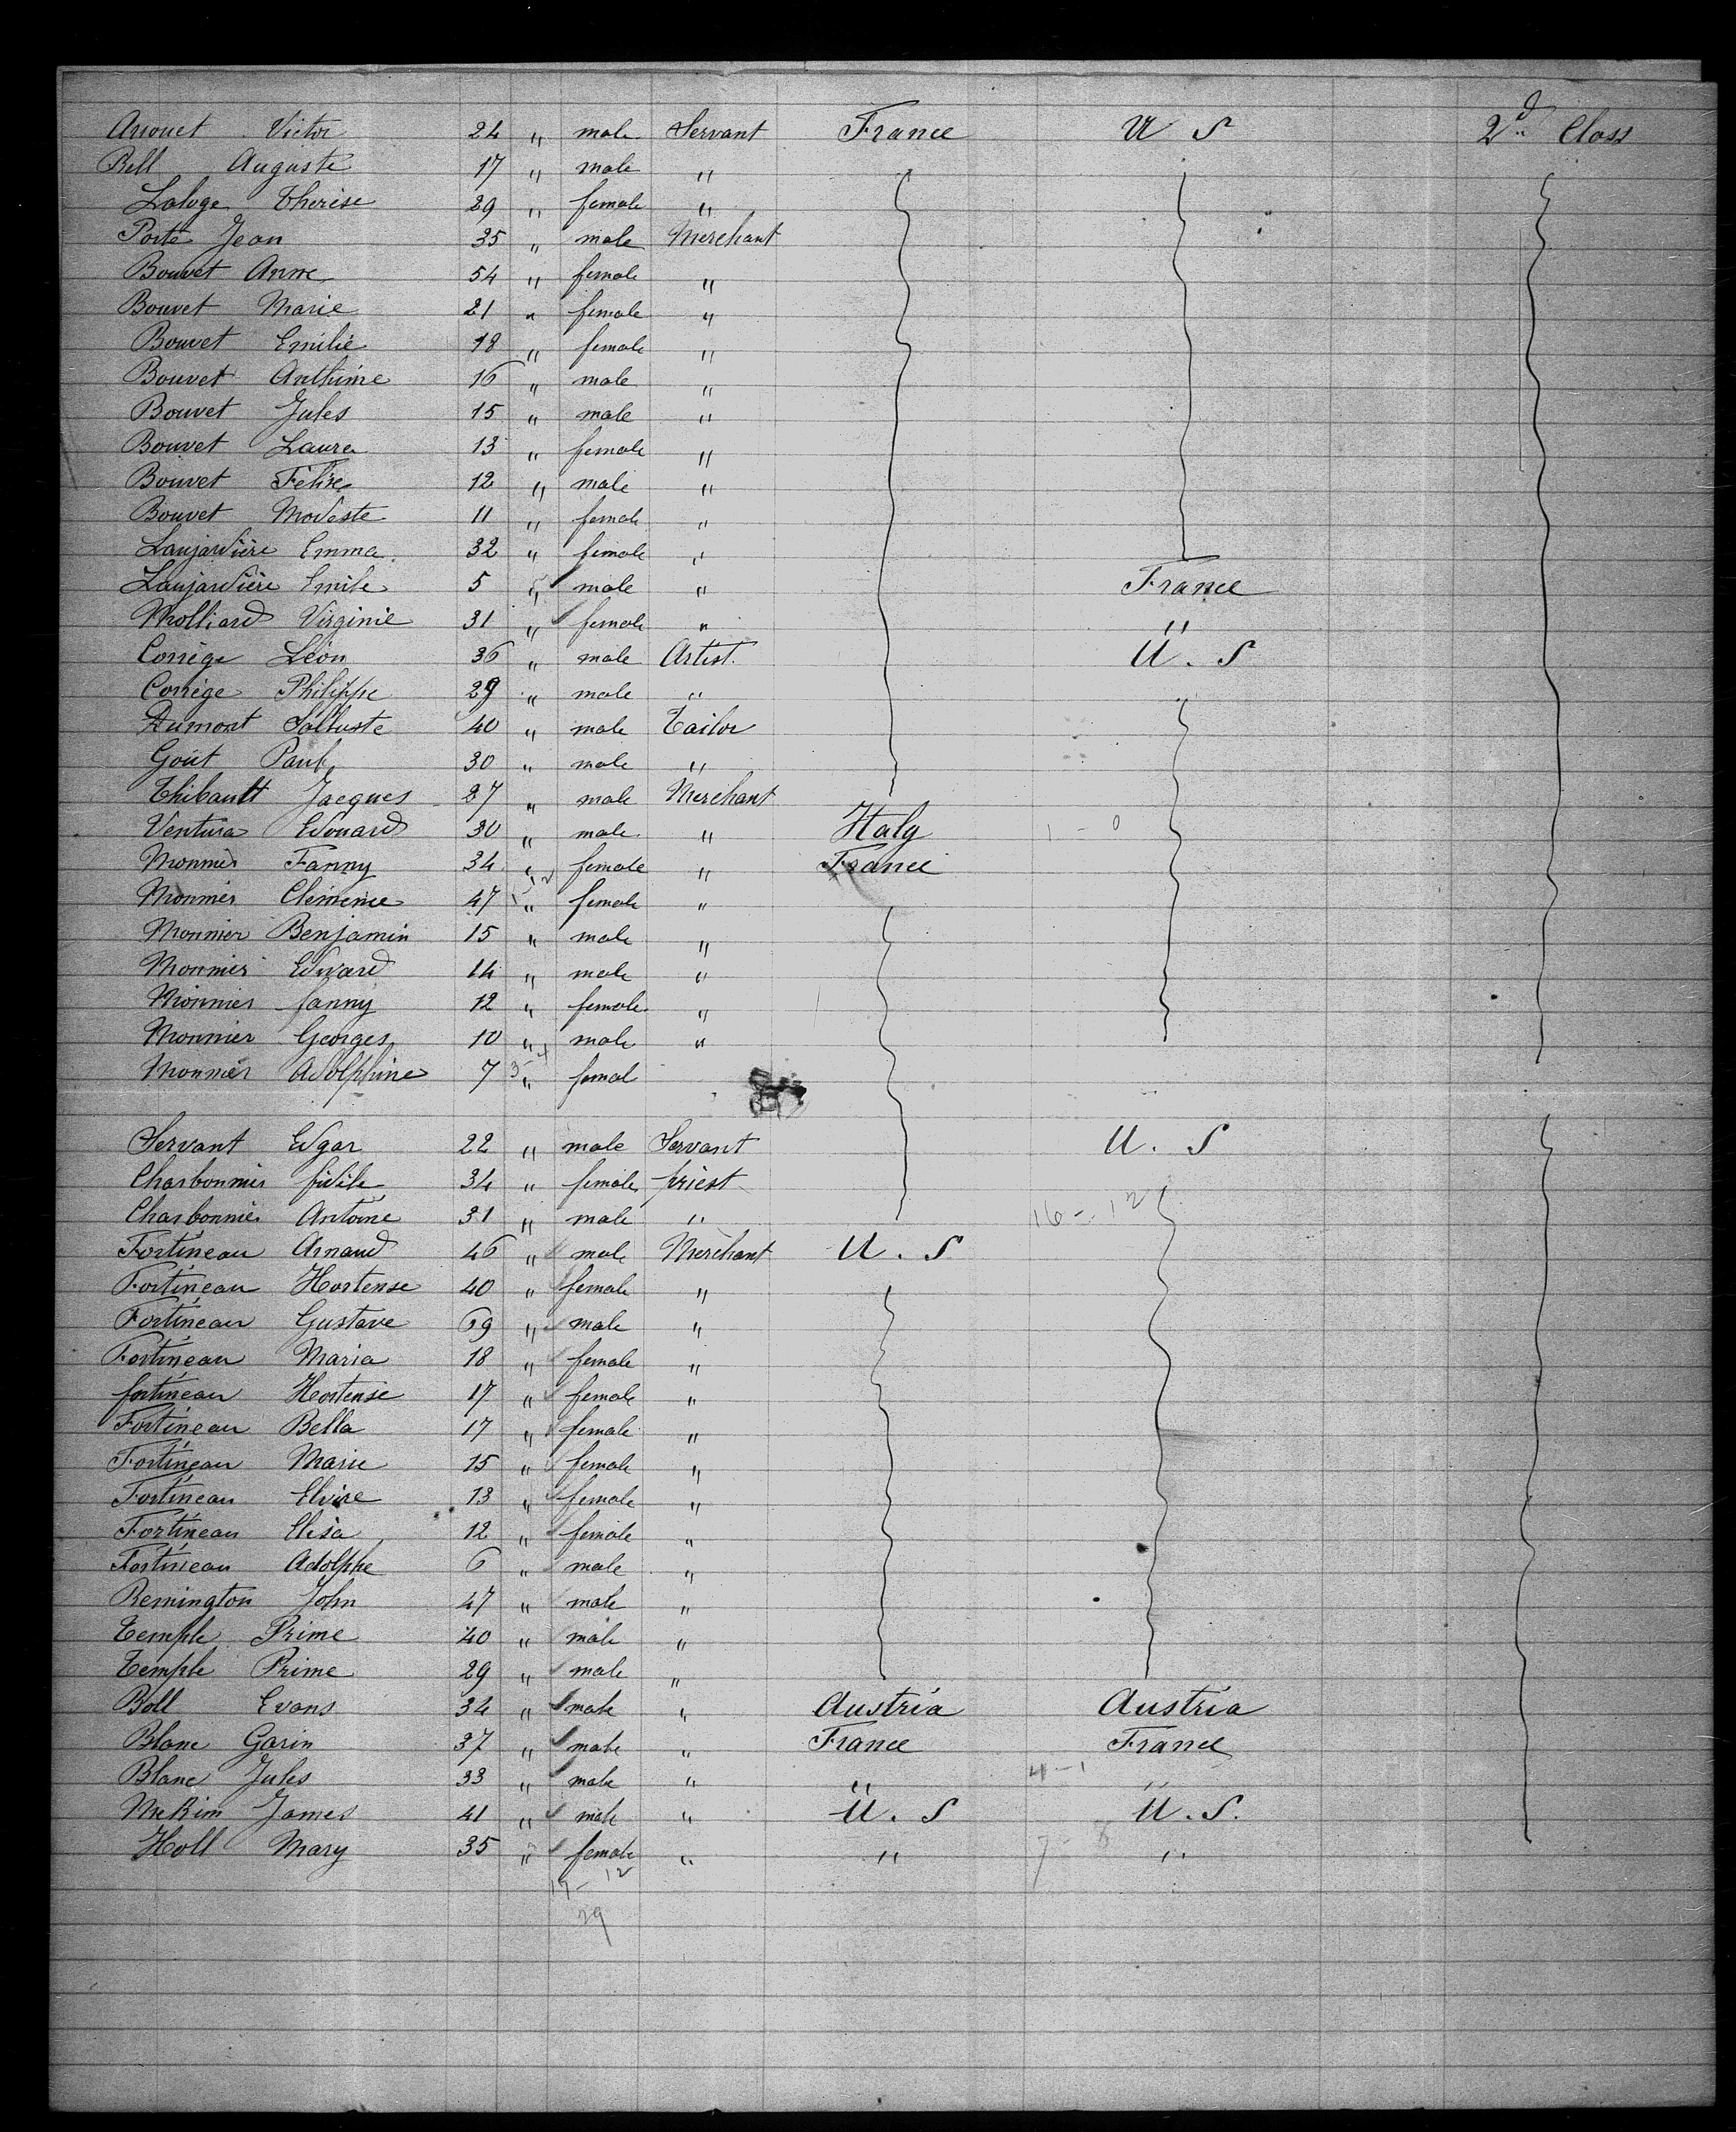 Arrouet Victor 24 " male Servant France U S 2d Class
Bell Auguste 17 " male "
Laloge Therese 29 " female "
Porte Jean 35 " male Merchant
Bouvet Anne 54 " female "
Bouvet Marie 21 " female "
Bouvet Emilie 18 " female "
Bouvet Anthime 16 " male "
Bouvet Jules 15 " male "
Bouvet Laure 13 " female "
Bouvet Félix 12 " male "
Bouvet Modeste 11 " female "
Laujardière Emma 32 " female "
Laujardière Emile 5 " male " France
Molliard Virginie 31 " female " "
Corrège Léon 36 " male Artist. U. S
Corrège Philippe 29 " male " "
Dumont Salluste 40 " male Tailor
Goût Paul 30 " male "
Thibault Jacques 27 " male Merchant
Ventura Edouard 30 " male " Italy 1 - 0
Monnier Fanny 34 " female " France
Monnier Clémence 47 " female "
Monnier Benjamin 15 " male "
Monnier Edward 14 " male "
Monnier fanny 12 " female "
Monnier Georges 10 " male "
Monnier Adolphine 7 " femal
Servant Edgar 22 " male Servant U. S
Charbonnier fidèle 34 " female priest
Charbonnier Antoine 31 " male " 16 - 12
Fortineau Arnaud 46 " male Merchant U. S
Fortineau Hortense 40 " female "
Fortineau Gustave 69 " male "
Fortineau Maria 18 " female "
fortineau Hortense 17 " female "
Fortineau Bella 17 " female "
Fortineau Marie 15 " female "
Fortineau Elvire 13 " female "
Fortineau Elisa 12 " female "
Fortineau Adolphe 6 " male "
Remington John 47 " male "
Temple Prime 40 " male "
Temple Prime 29 " male "
Boll Evans 34 " male " Austria Austria
Blanc Garin 37 " male " France France
Blanc Jules 33 " male " " 4 - 1 "
McKim James 41 " male " U. S U. S.
Holl Mary 35 " female " " 7 - 8 "
17 - 12
29